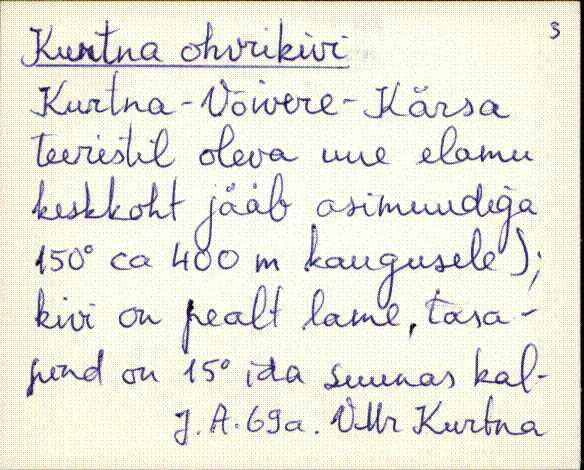 3
Kurtna ohvrikivi
Kurtna-Võivere-Kärsa
teeristil oleva uue elamu
keskkoht jääb asimuudiga
150° ca 400 m kaugusele);
kivi on pealt lame, tasa-
pind on 15° ida suunas kal-
J. A. 69a. VMr Kurtna